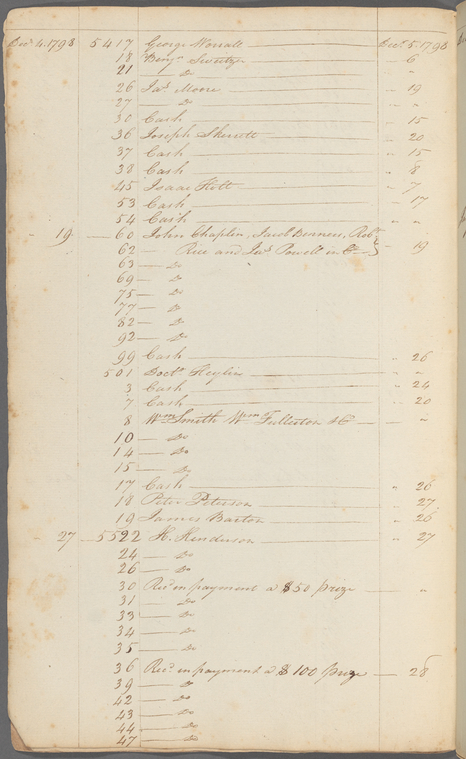 Decr 4. 1798 5417 George Worrall Decr. 5. 1798
18 Benjn. Sweetzer 6
21 Do "
26 Jas. Moore " 19
27 Do " "
30 Cash " 15
36 Joseph Skerrett " 20
37 Cash " 15
38 Cash " 8
45 Isaac Hott " 7
53 Cash " 17
54 Cash " "
" 19 60 John Chaplin, Jacob Benners, Robt
62 Rice and Jas. Powell in Co " 19
63 Do
69 Do
75 Do
77 Do
82 Do
92 Do
99 Cash " 26
501 Doctr. Heylin " "
3 Cash " 24
7 Cash " 20
8 Wm Smith Wm Fullerton &C "
10 Do
14 Do
15 Do
17 Cash " 26
18 Peter Peterson " 27
19 James Barton " 26
27 5522 H. Henderson " 27
24 Do
26 Do
30 Recd in payment a $50 prize "
31 Do
33 Do
34 Do
35 Do
36 Recd. in payment a $100 prize 28
39 Do
42 Do
43 Do
44 Do
47 Do